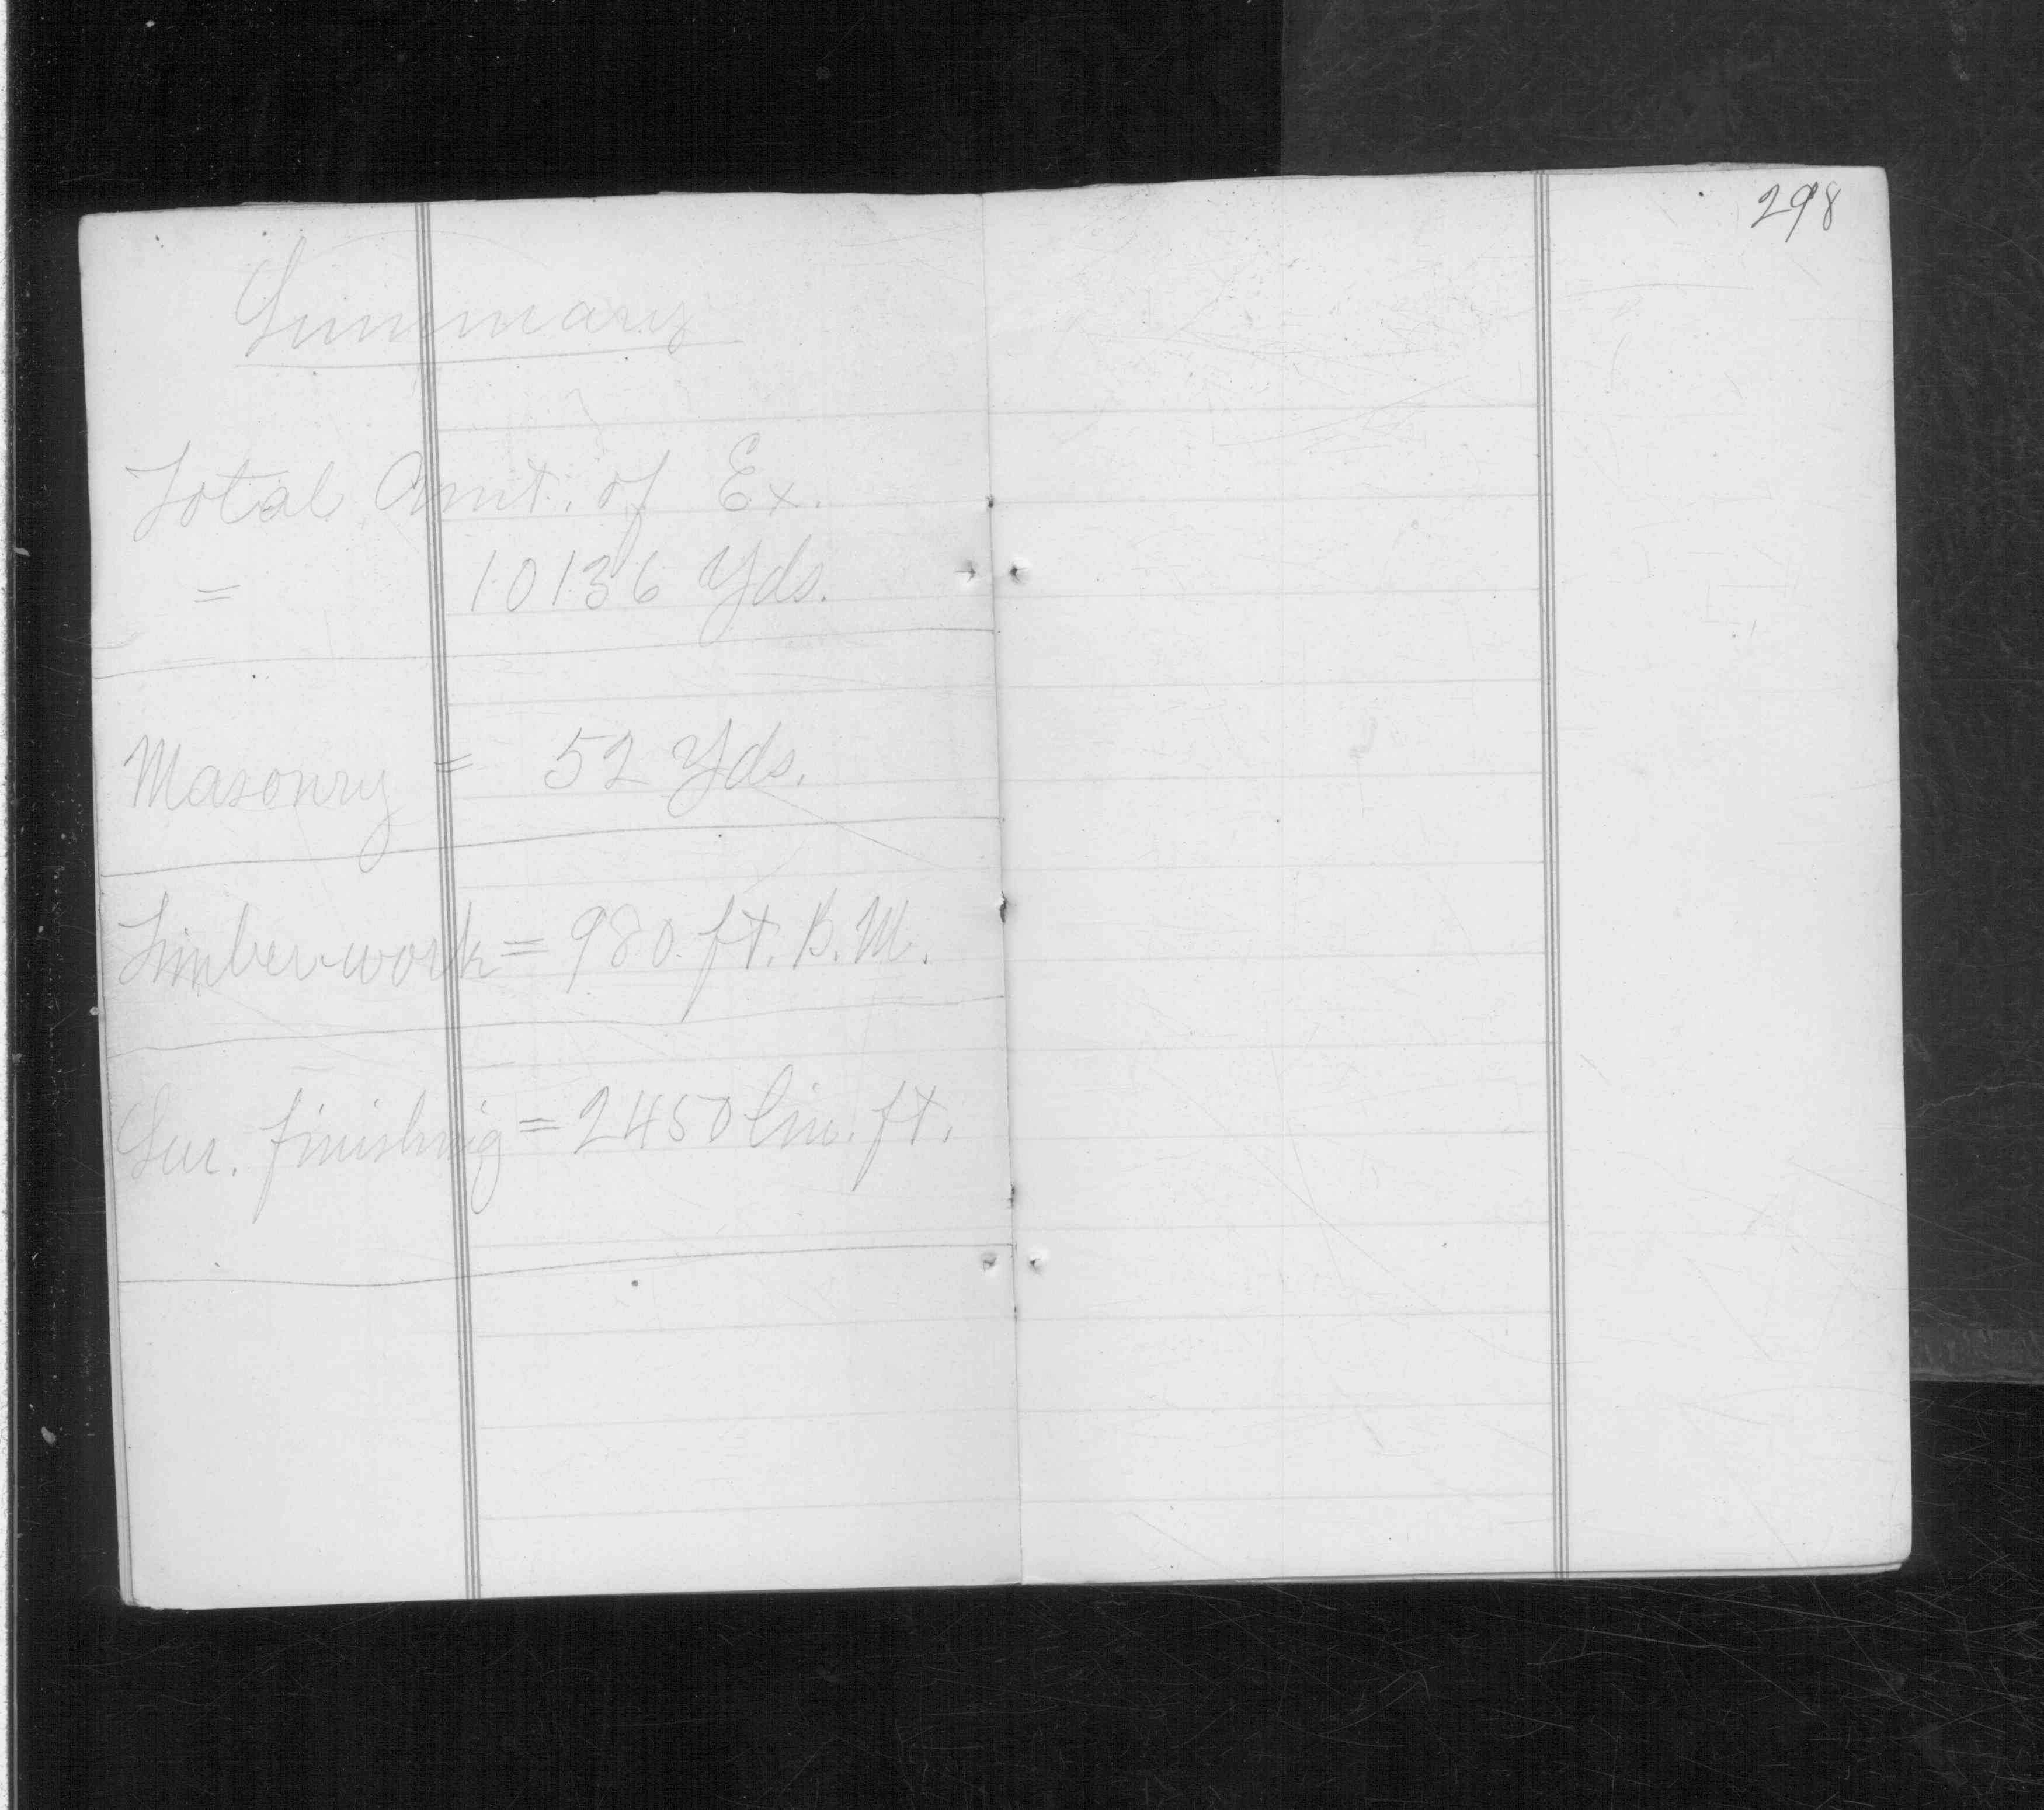 Summary
Total Amt. of Ex.
= 10136 Yds.
Masonry = 52 Yds.
Timber-work = 980. ft. B. M.
Sur. finishing = 2450 lin. ft.
298